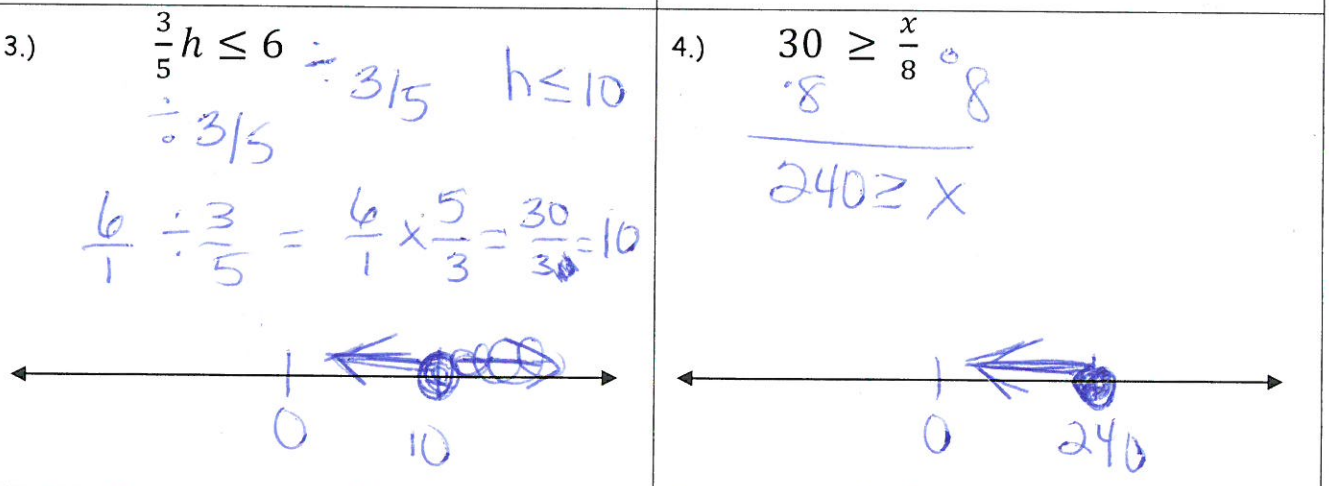 3.) 3/5 h ≤ 6 ÷ 3/5 h ≤ 10
÷ 3/5
6/1 ÷ 3/5 = 6/1 × 5/3 = 30/3 = 10
0 10
4.) 30 ≥ x/8 · 8
·8
240 ≥ x
0 240